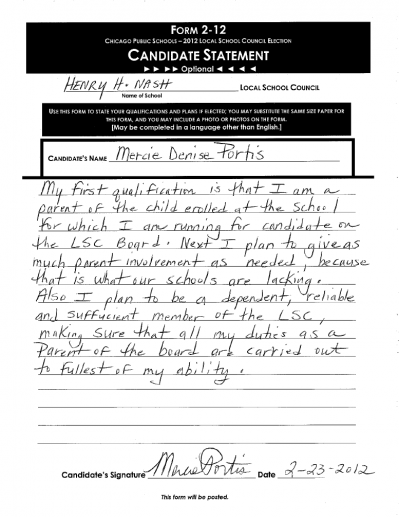 FORM 2-12
CHICAGO PUBLIC SCHOOLS – 2012 LOCAL SCHOOL COUNCIL ELECTION
CANDIDATE STATEMENT
► ► ► ► Optional ◄ ◄ ◄ ◄
HENRY H. NASH LOCAL SCHOOL COUNCIL
Name of School
USE THIS FORM TO STATE YOUR QUALIFICATIONS AND PLANS IF ELECTED; YOU MAY SUBSTITUTE THE SAME SIZE PAPER FOR
THIS FORM, AND YOU MAY INCLUDE A PHOTO OR PHOTOS ON THE FORM.
[May be completed in a language other than English.]
CANDIDATE'S NAME Mercie Denise Portis
My first qualification is that I am a
parent of the child erolled at the school
for which I am running for candidate on
the LSC Board. Next I plan to give as
much parent involvement as needed, because
that is what our schools are lacking.
Also I plan to be a dependent, reliable
and suffucient member of the LSC,
making sure that all my duties as a
Parent of the board are carried out
to fullest of my ability.
Candidate's Signature Mercie Portis Date 2-23-2012
This form will be posted.